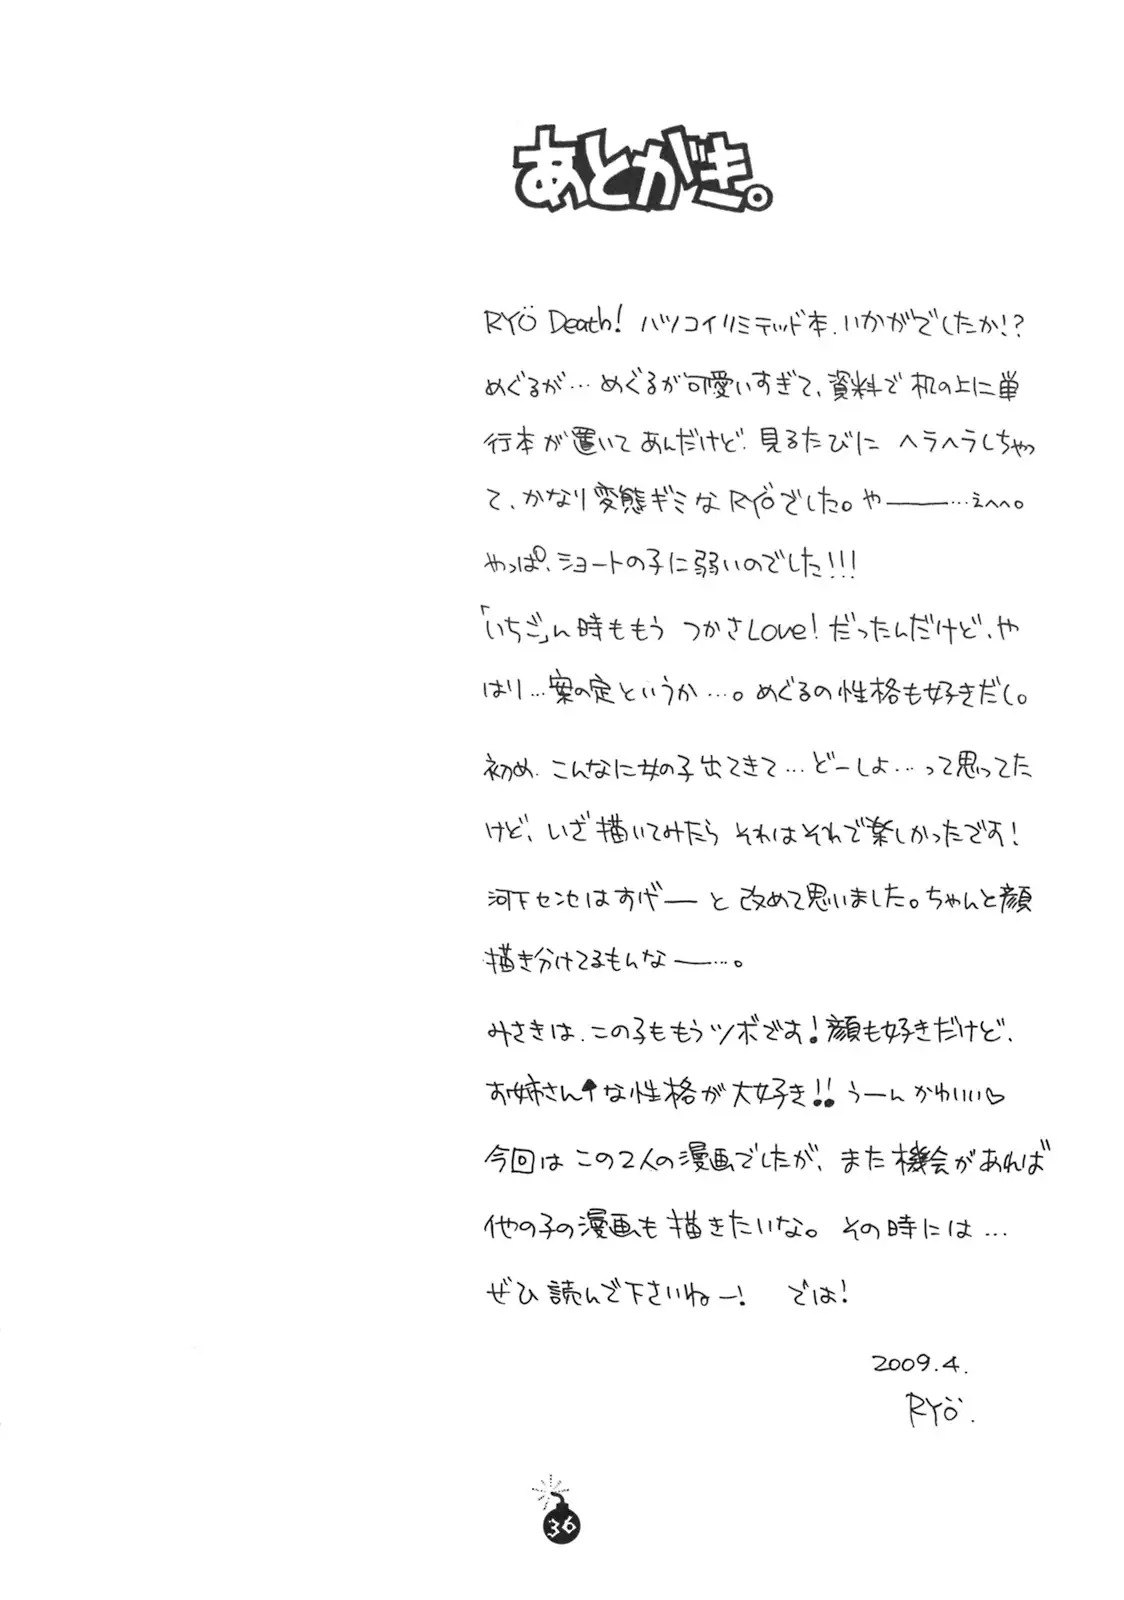 あとがき。
RYÖ Death! ハツコイリミテッド本、いかがでしたか!?
めぐるが…めぐるが可愛いすぎて、資料で机の上に単
行本が置いてあんだけど、見るたびに ヘラヘラしちゃっ
て、かなり変態ギミなRYÖでした。や――…えへへ。
やっぱ、ショートの子に弱いのでした!!!
「いちご」ん時ももう つかさLove! だったんだけど、や
はり…案の定というか…。めぐるの性格も好きだし。
初め、こんなに女の子出てきて…どーしよ…って思ってた
けど、いざ描いてみたら それはそれで楽しかったです!
河下センセはすげーと改めて思いました。ちゃんと顔
描き分けてるもんなー…。
みさきは、この子ももうツボです!顔も好きだけど、
お姉さん♠な性格が大好き!!うーんかわいい♡
今回はこの2人の漫画でしたが、また機会があれば
他の子の漫画も描きたいな。その時には…
ぜひ読んで下さいねー! では!
2009.4.
RYÖ.
36